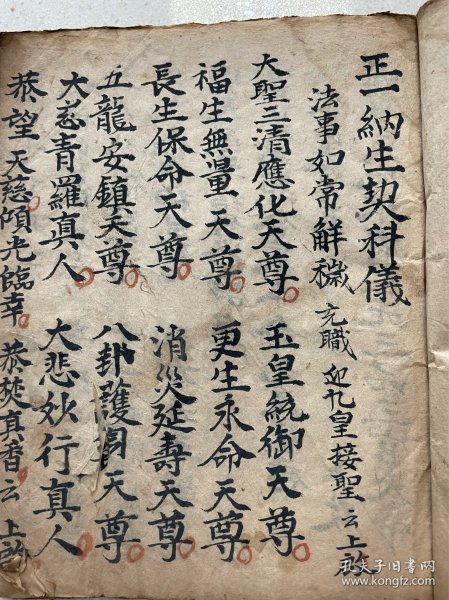 正一納生契科儀
法事如常解穢 充職 迎九皇接聖 云 上啟
大聖三清應化天尊 玉皇統御天尊
福生無量天尊 更生永命天尊
長生保命天尊 消災延壽天尊
五龍安鎮天尊 八卦護身天尊
大慈青羅真人 大悲妙行真人
恭望 天慈傾光臨幸 恭焚真香 云 上啟
孔夫子旧书网
kongfz.com